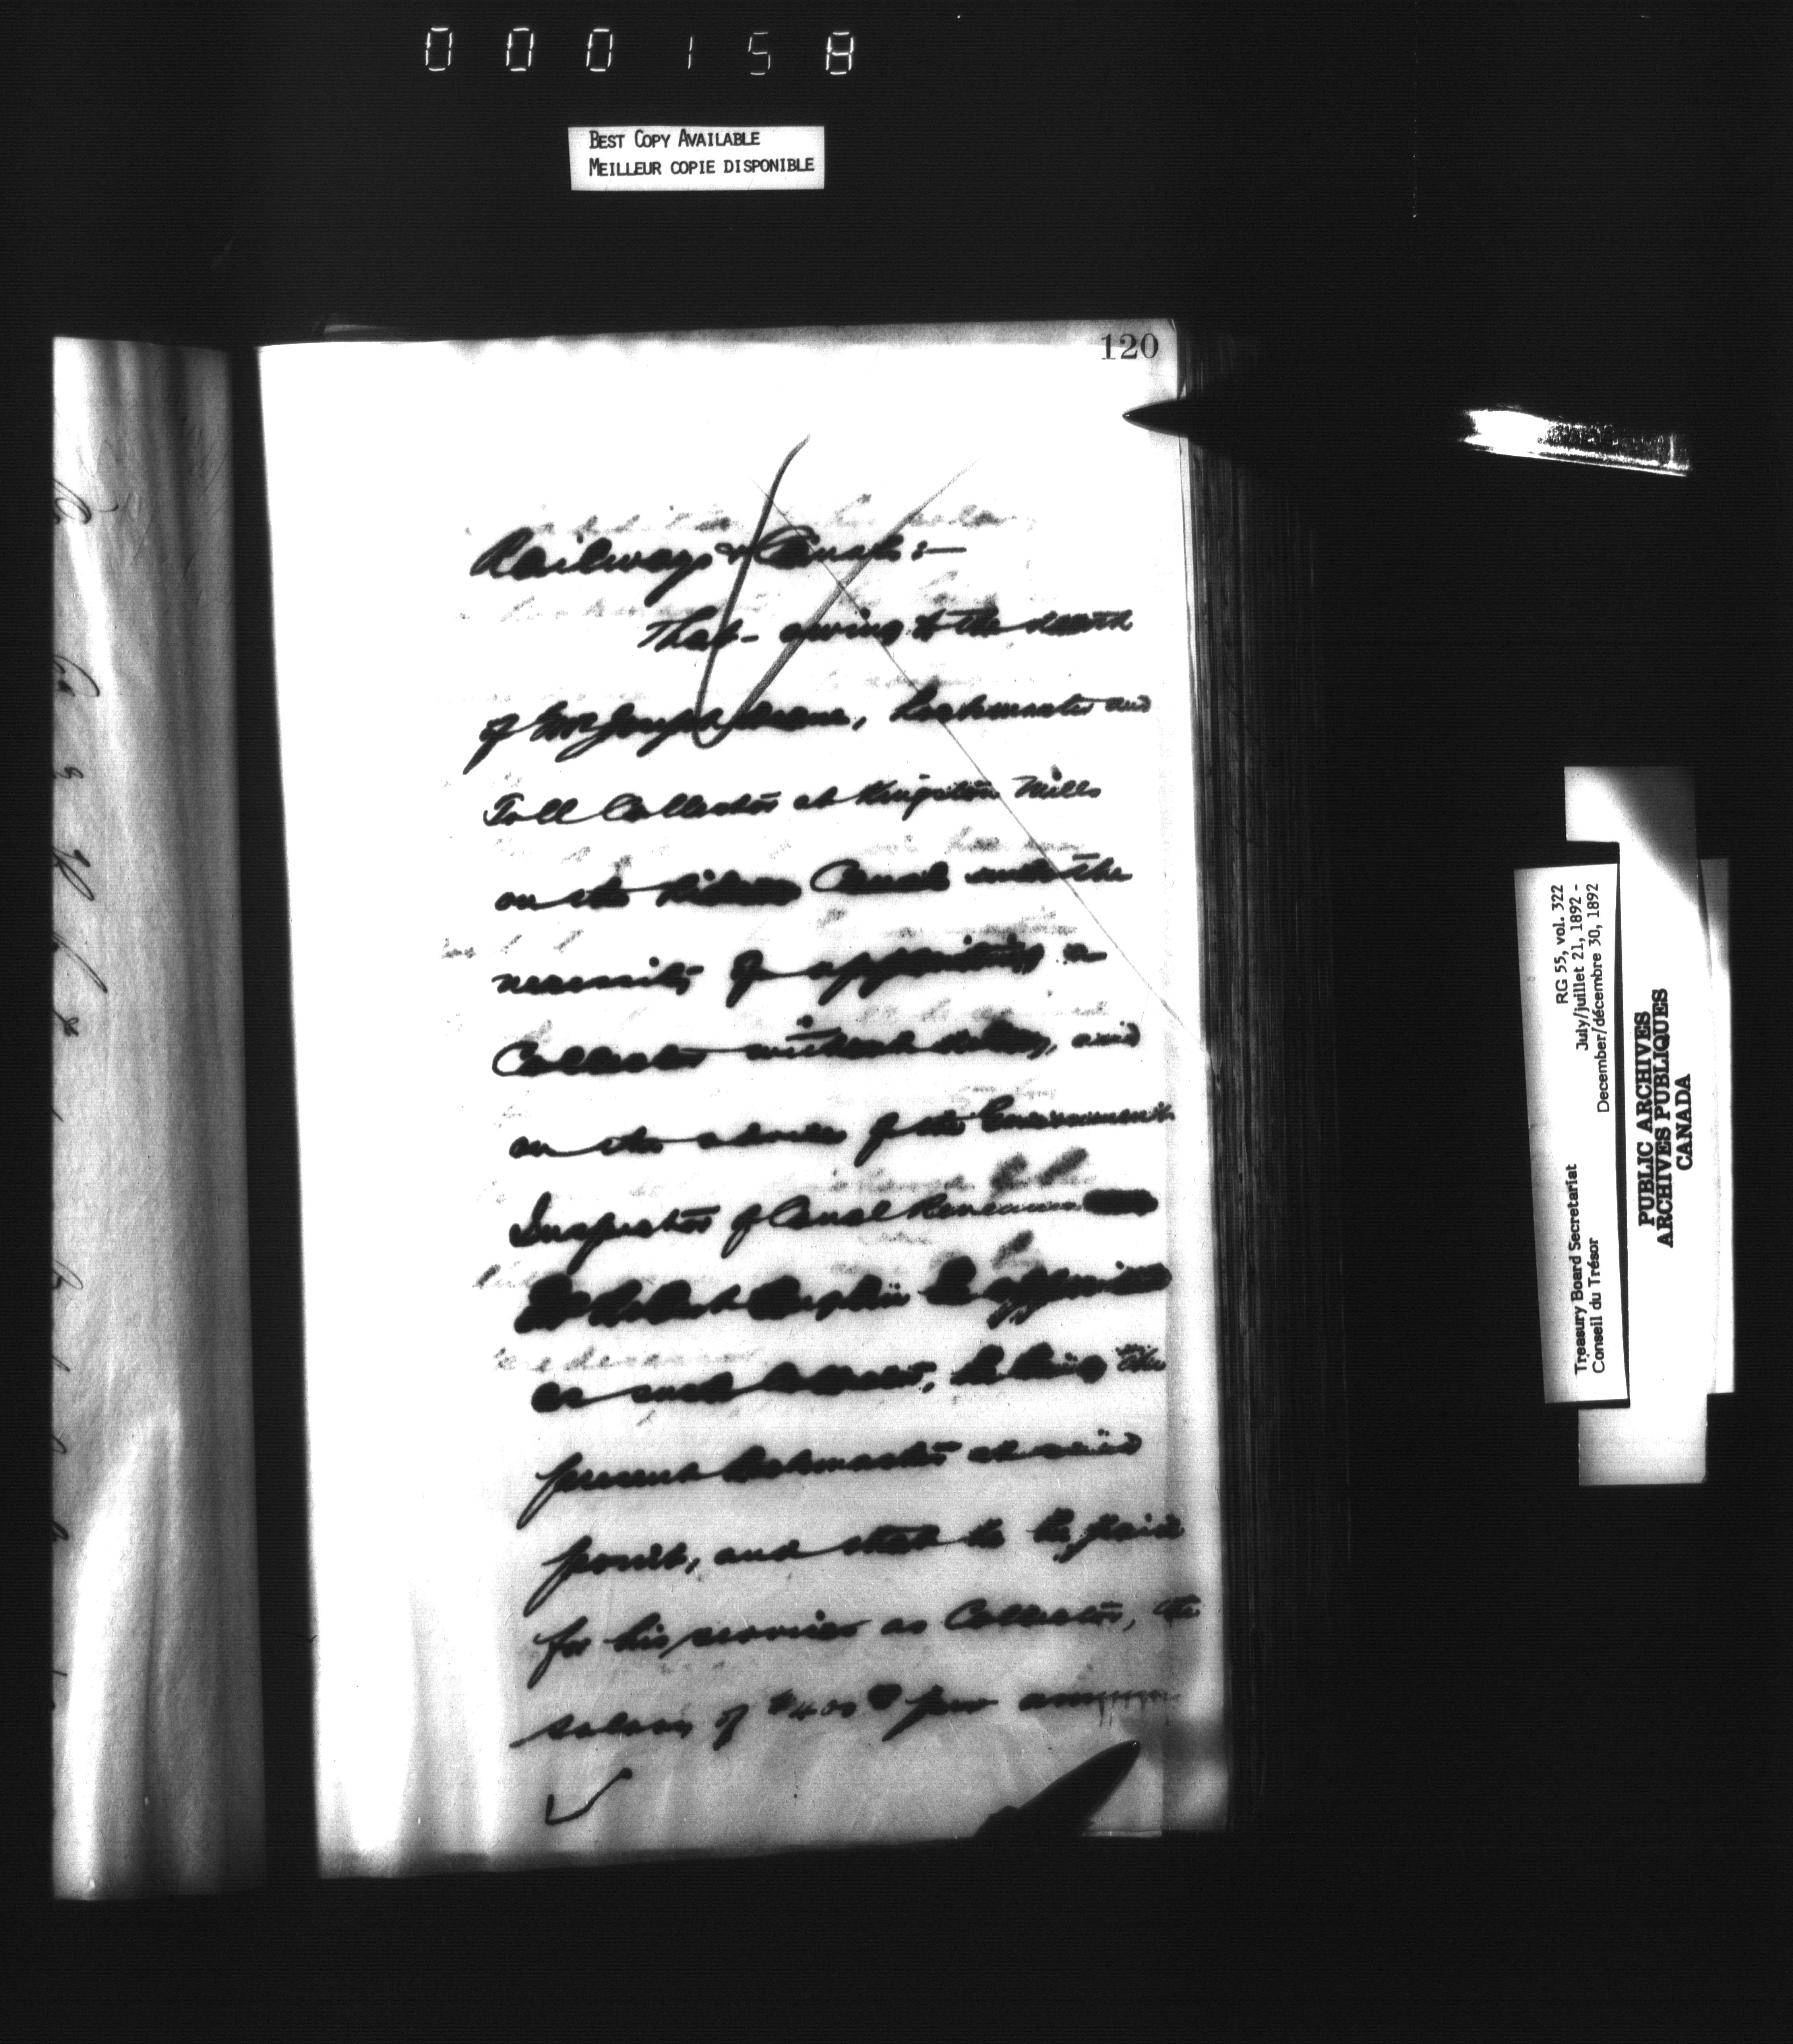 000158
BEST COPY AVAILABLE
MEILLEUR COPIE DISPONIBLE
120
Railways & Canals:—
That - owing to the death
of Mr Joseph Deane, Lockmaster and
Toll Collector at Kingston Mills
on the Rideau Canal and the
necessity of appointing a
Collector without delay, and
on the advice of the Government
Inspector of Canal Revenue
Mr Robert be appointed
as such Collector, he being the
present Lockmaster at said
point, and that he be paid
for his services as Collector, the
salary of $400 per annum
RG 55, vol. 322
July/juillet 21, 1892 -
December/décembre 30, 1892
Treasury Board Secretariat
Conseil du Trésor
PUBLIC ARCHIVES
ARCHIVES PUBLIQUES
CANADA